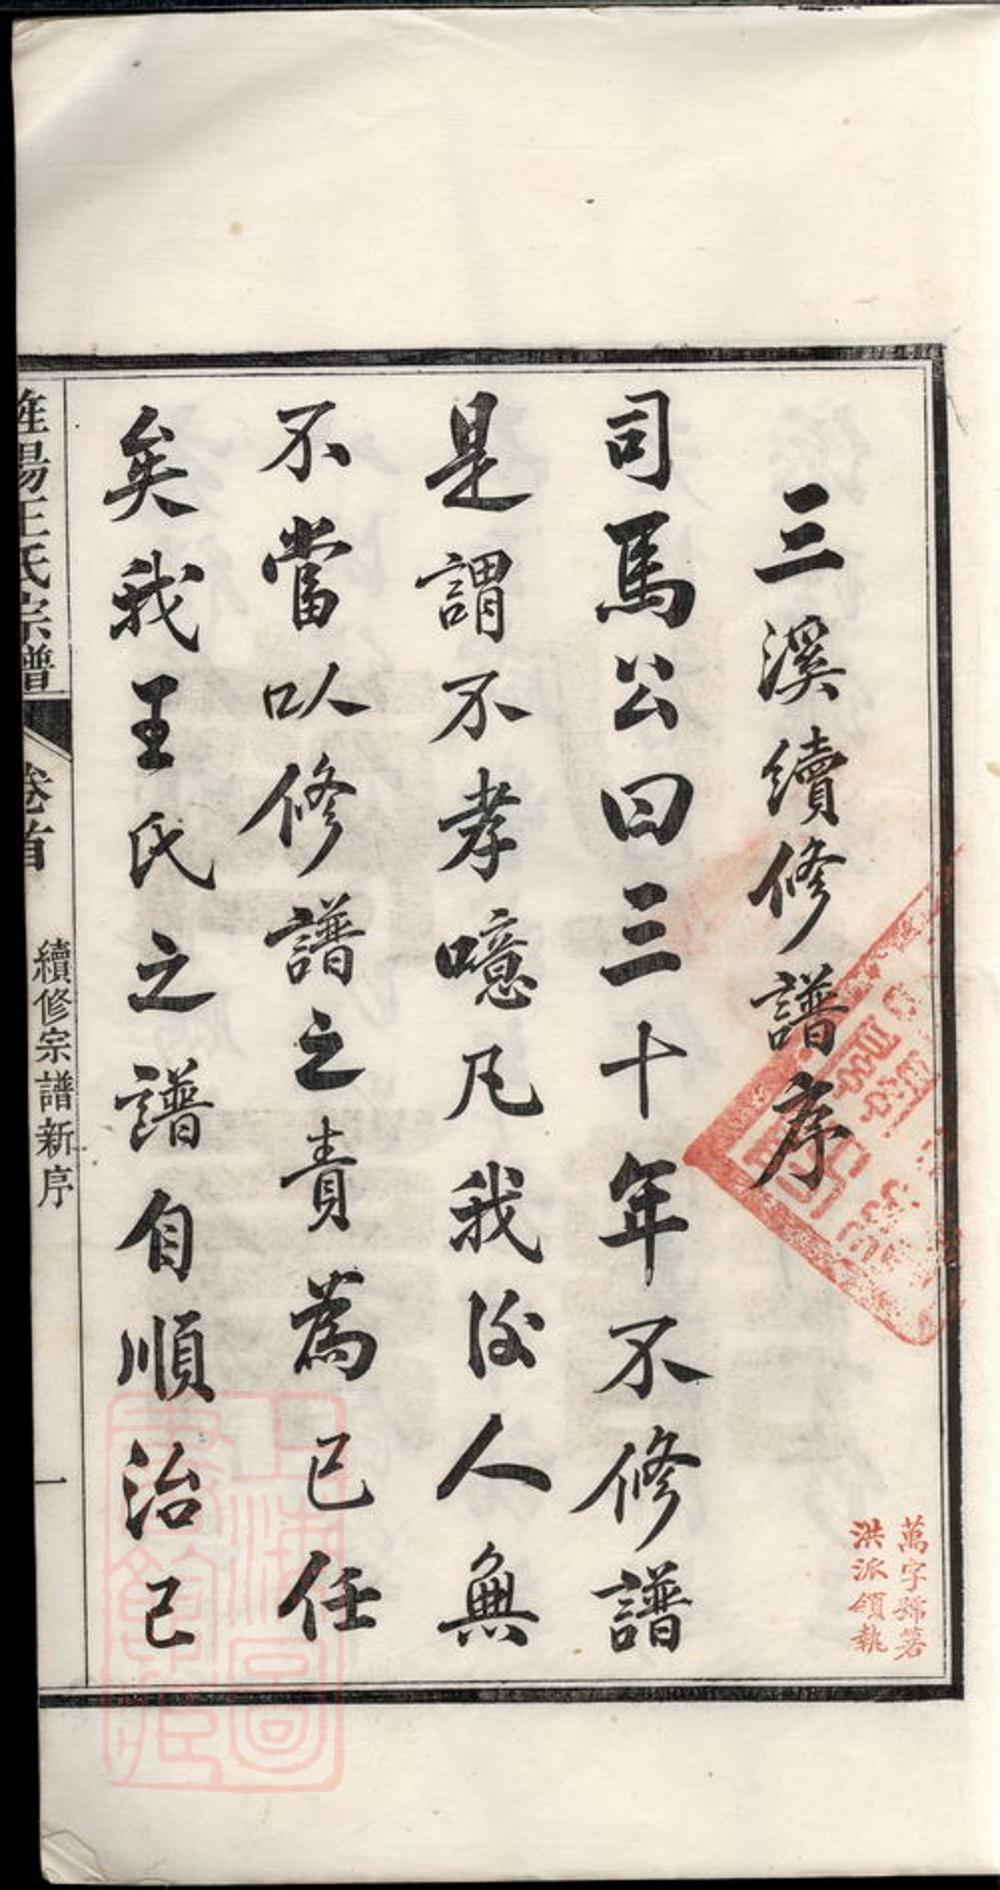 三溪續修譜序
司馬公曰三十年不修譜
是謂不孝噫凡我後人無
不當以修譜之責為已任
矣我王氏之譜自順治己
萬字號箬
洪派領執
陽王氏宗譜
卷首
續修宗譜新序
一
上海圖
書館藏